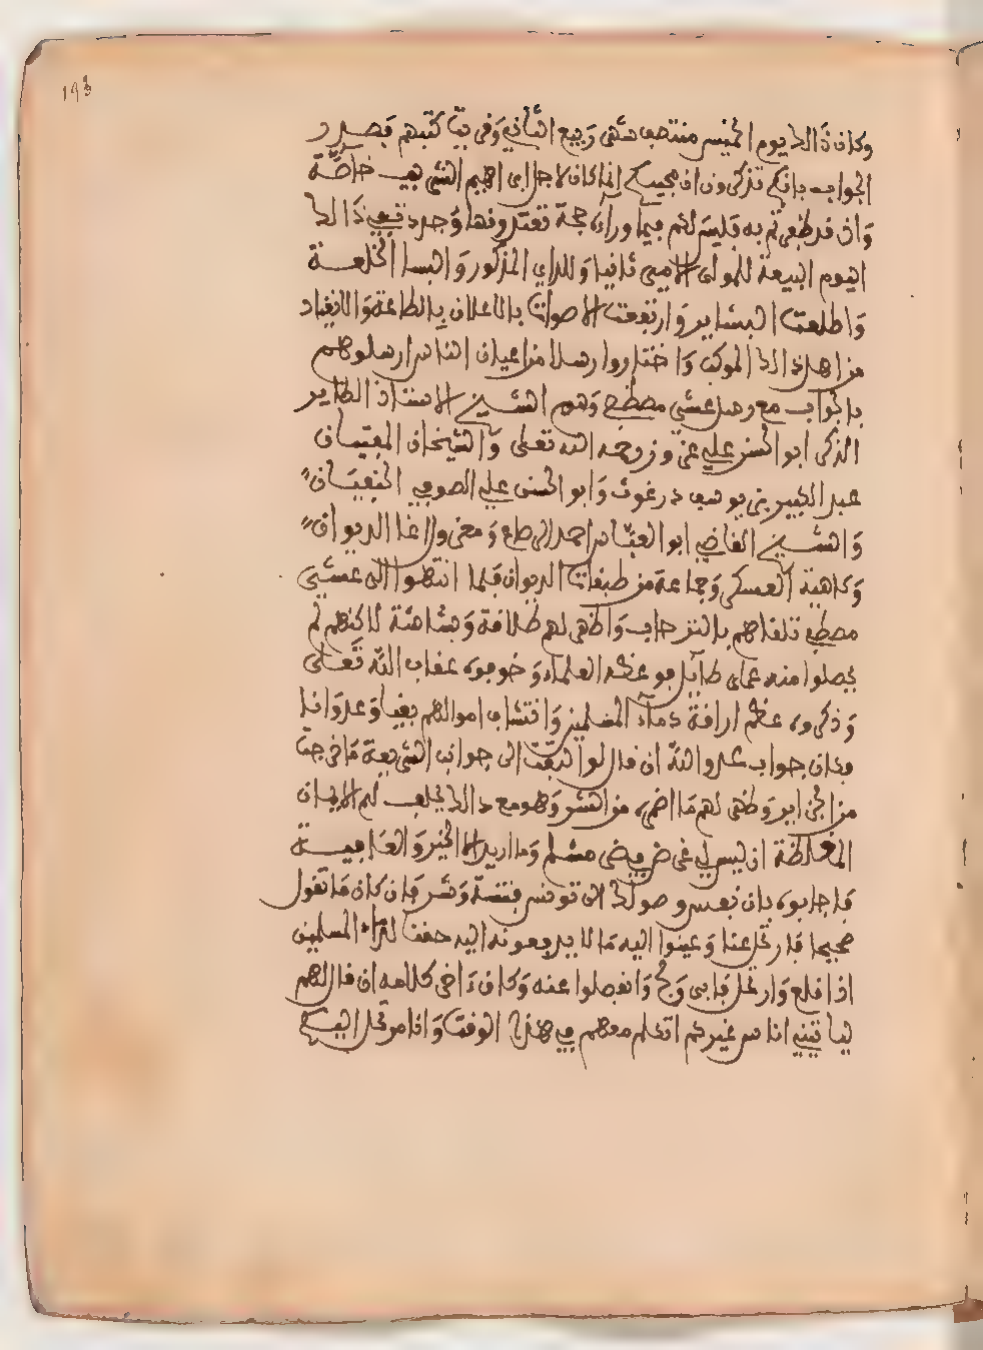 193
وكان ذالك يوم الخميس منتصف شهر ربيع الثاني وقرئت كتبهم فصدر
الجواب بانكم تذكرون ان مجيبكم انما كان لاجل ابراهيم الشريف خاصة
وان قد ظفرتم به فليس لكم فيما وراءه حجة تعتدونها وجددت في ذالك
اليوم البيعة للمولى الامير ثانيا وللداي المذكور والبسا الخلعة
واطلعت البشاير وارتفعت الاصوات بالاعلان بالطاعة والانقياد
من اهل ذالك الموكب واختاروا رسلا من اعيان الناس ارسلوهم
بالجواب مع رسل عشي مصطفى وهم الشيخ الاستاذ الطاير
الذكر ابو الحسن علي عزوز رحمه الله تعلى والشيخان المفتيان
عبد الكبير بن يوسف درغوث وابو الحسن علي الصوفي الحنفيان
والشيخ القاضي ابو العباس احمد الرصاع ومعزول اغا الديوان
وكاهية العسكر وجماعة من طبقات الديوان فلما انتهوا الى عشي
مصطفى تلقاهم بالترحاب واظهر لهم طلاقة وبشاشة لاكنهم لم
يحصلوا منه على طايل فوعظه العلماء وخوفوه عقاب الله تعلى
وذكروه عظم اراقة دماء المسلمين وانتشاب اموالهم بغيا وعدوانا
فكان جواب عدو الله ان قال لو التفت الى جوانب الشريعة ما خرجت
من الجزاير وظهر لهم ما اضمره من الشر وهو مع ذالك يحلف لهم الايمان
المغلظة ان ليس لي غرض في ضرر مسلم وما اريد الا الخير والعافية
فاجابوه بان نفس وصولك الى تونس فتنة وشر فان كان ما تقول
صحيحا فارتحل عنا وعينوا اليه مالا يدفعونه اليه حقنا لدماء المسلمين
اذا اقلع وارتحل فابى ولج وانفصلوا عنه وكان ءاخر كلامه ان قال لهم
لياتيني اناس غيركم اتكلم معهم في هذا الوقت وانا مرتحل اليكم